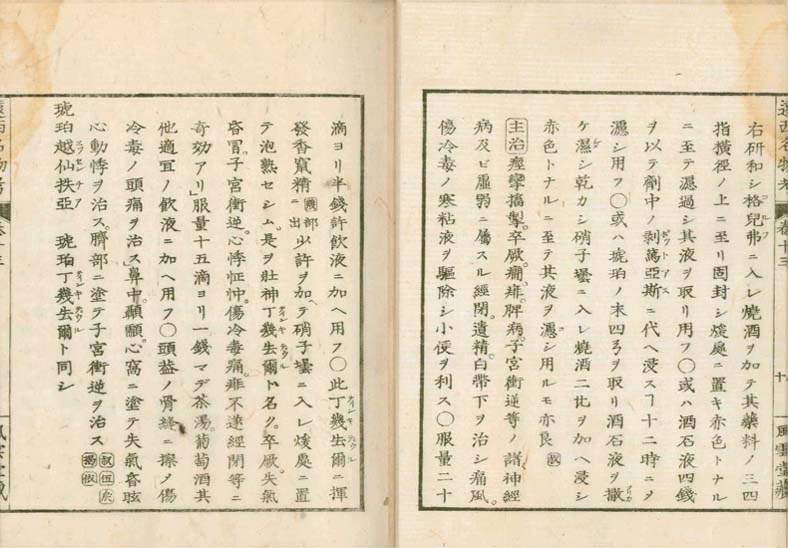 遠西名物考 卷十三 風雲堂藏
右研和シ格兒弗ニ入レ燒酒ヲ加テ其藥料ノ三四
指横徑ノ上ニ至リ固封シ煖處ニ置キ赤色トナル
ニ至テ濾過シ其液ヲ取リ用フ〇或ハ酒石液四錢
ヲ以テ劑中ノ剥篤亞斯ニ代ヘ浸スヿ十二時ニヲ
濾シ用フ〇或ハ琥珀ノ末四ヲ取リ酒石液ヲ
ケ濕シ乾カシ硝子壜ニ入レ燒酒二比ヲ加ヘ浸シ
赤色トナルニ至テ其液ヲ濾シ用ルモ亦良
主治 痙攣搐掣。卒厥。癇。痱。脾病。子宮衝逆等ノ諸神經
病及ビ虚弱ニ屬スル經閉。遺精。白帶下ヲ治シ痛風。
傷冷毒ノ寒粘液ヲ驅除シ小便ヲ利ス〇服量二十
滴ヨリ半錢許飲液ニ加ヘ用フ〇此丁幾去爾ニ揮
發香竄精 部ニ出 少許ヲ加ヘテ硝子壜ニ入レ煖處ニ置
テ泡熟セシム。是ヲ壯神丁幾去爾ト名ク。卒厥。失氣
昏冒。子宮衝逆。心悸怔忡。傷冷毒痛。痱不遂經閉等ニ
奇効アリ」服量十五滴ヨリ一錢マデ茶湯。葡萄酒其
他適宜ノ飲液ニ加ヘ用フ〇頭蓋ノ骨縫ニ擦ノ傷
冷毒ノ頭痛ヲ治ス」鼻中。顳顬。心窩ニ塗テ失氣昏眩
心動悸ヲ治ス。臍部ニ塗テ子宮衝逆ヲ治ス
琥珀越仙抶亞 琥珀丁幾去爾ト同シ
遠西名物考 卷十三 風雲堂藏